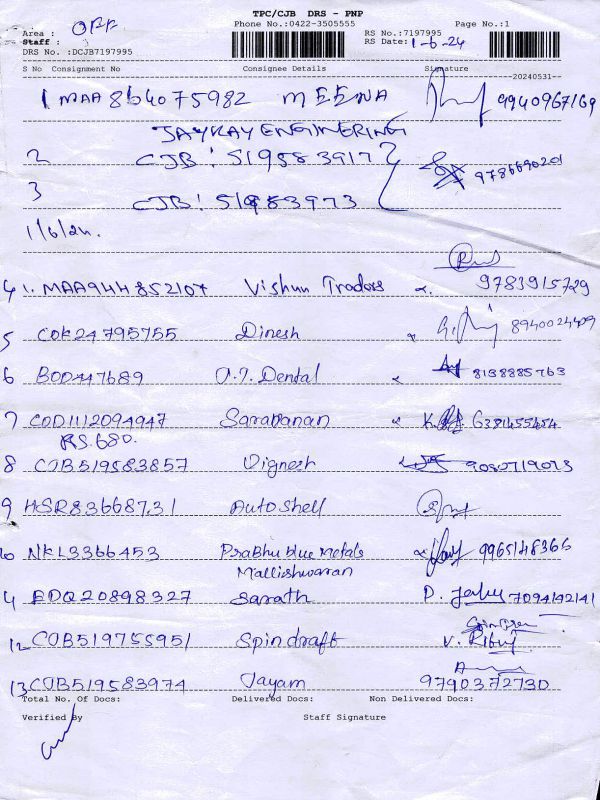 TPC/CJB DRS - PNP
Phone No.:0422-3505555 Page No.:1
Area : OFF
RS No.:7197995
Staff :
RS Date: 1-6-24
DRS No. :DCJB7197995
S No Consignment No Consignee Details Signature
20240531
1 MAA 864075982 MEENA 9940967169
JAYKAY ENGINEERING
2 CJB: 519583917 9786690201
3 CJB! 519583973
1/6/24.
4 1. MAA944852107 Vishnu Traders 9783915729
5 COK24795755 Dinesh 8940024409
6 BOD447689 a.j. Dental 8138885763
7 COD1112094947 Saravanan 6381455454
RS 680.
8 CJB519583857 Vignesh 9080719023
9 HSR83668731 Autoshell
10 NKL3366453 Prabhu blue metals 9965148366
Mallishwaran
EDQ20898327 Sarath 7094142141
12 CJB519755951 Spindraft
13 CJB519583974 Jayam 9790372730
Total No. Of Docs: Delivered Docs: Non Delivered Docs:
Verified By Staff Signature